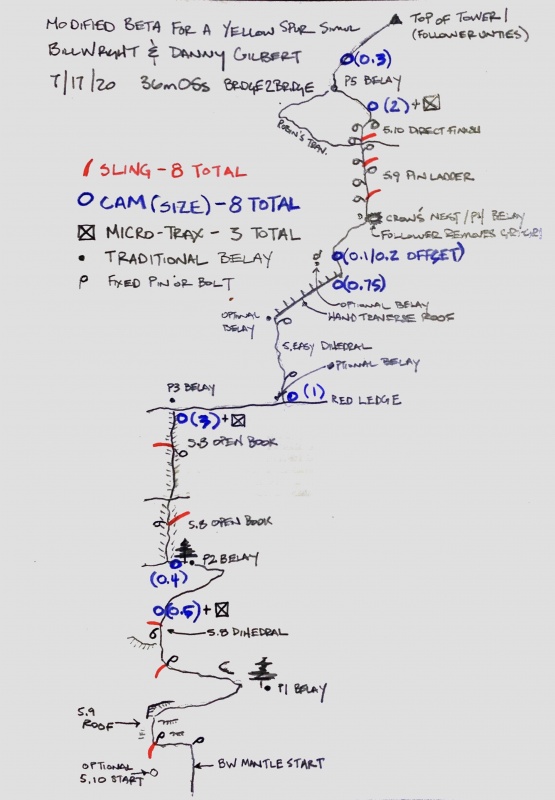 MODIFIED BETA FOR A YELLOW SPUR SIMUL
BILL WRIGHT & DANNY GILBERT
7/17/20 36m05s BRIDGE2BRIDGE
TOP OF TOWER 1
(FOLLOWER UNTIES)
(0.3)
P5 BELAY
(2) +
ROBIN'S TRAV.
5.10 DIRECT FINISH
SLING - 8 TOTAL
CAM (SIZE) - 8 TOTAL
MICRO-TRAX - 3 TOTAL
TRADITIONAL BELAY
FIXED PIN OR BOLT
5.9 PIN LADDER
CROW'S NEST / P4 BELAY
FOLLOWER REMOVES GRIGRI
(0.1/0.2 OFFSET)
(0.75)
OPTIONAL BELAY
HAND TRAVERSE ROOF
OPTIONAL
BELAY
5.EASY DIHEDRAL
OPTIONAL BELAY
P3 BELAY
(1)
RED LEDGE
(3) +
5.8 OPEN BOOK
5.8 OPEN BOOK
P2 BELAY
(0.4)
(0.5) +
5.8 DIHEDRAL
P1 BELAY
5.9
ROOF
BW MANTLE START
OPTIONAL
5.10 START